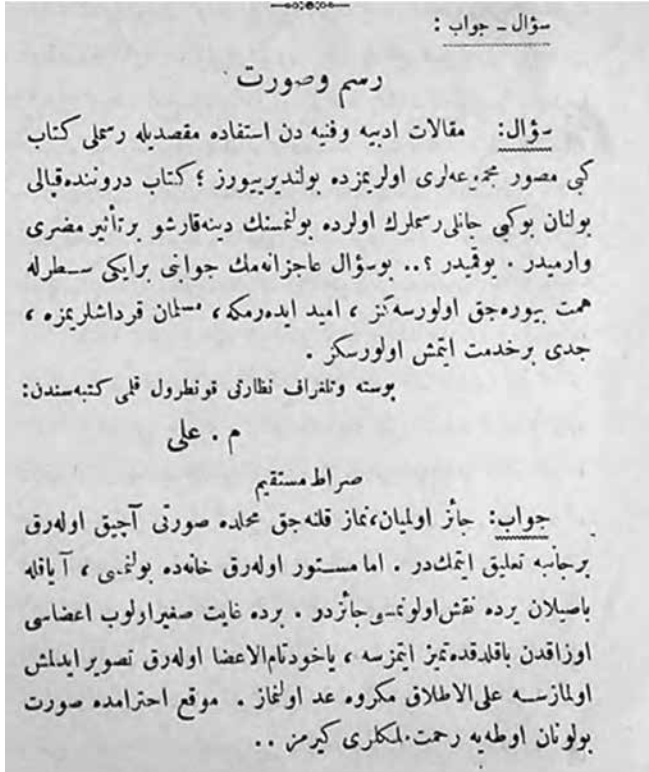 سؤال ـ جواب :
رسم وصورت
سؤال: مقالات ادبیه وفنیه دن استفاده مقصدیله رسملی کتاب
کبی مصور مجموعه‌لری اولریمزده بولندیرییورز ؛ کتاب دروننده‌قپالی
بولنان بوکبی جانلی رسملرك اولرده بولنمسنك دینه‌قارشو برتأثیر مضری
وارمیدر . یوقمیدر ؟.. بوسؤال عاجزانه‌مك جوابنی برایکی سطرله
همت بیوره‌جق اولورسه‌کز ، امید ایده‌رمکه، مسلمان قرداشلریمزه ،
جدی برخدمت ایتمش اولورسکز .
پوسته وتلغراف نظارتی قونطرول قلمی کتبه‌سندن:
م . علی
صراط مستقیم
جواب: جائز اولمیان،نماز قلنه‌جق محلده صورتی آچیق اوله‌رق
برجانبه تعلیق ایتمك‌در . اما مستور اوله‌رق خانه‌ده بولنمسی ، آیاقله
باصیلان یرده نقش‌اولونمسی‌جائزدر . یرده غایت صغیراولوب اعضاسی
اوزاقدن باقلدقده‌تمیز ایتمزسه ، یاخودتام‌الاعضا اوله‌رق تصویر ایدلمش
اولمازسه علی‌الاطلاق مکروه عد اولنماز . موقع احترامده صورت
بولونان اوطه‌یه رحمت ملکلری کیرمز ..